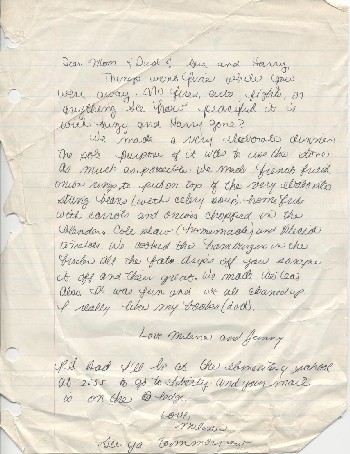 Dear Mom & Dad & Sue and Harry,
Things went fine while you
were away. No fires, cuts, fights, or
anything. See how peaceful it is
with Suzy and Harry gone?
We made a very elaborate dinner.
The sole purpose of it was to use the stove
as much as possible. We made french fried
onion rings to put on top of the very elaborate
string beans (with celery soup
with carrots and onions chopped in the
blender. Cole slaw (homemade) and sliced
tomatoes. We cooked the hamburgers in the
broiler all the fats drips off you
it off and their great. We made
also. It was fun and we all cleaned up
I really like my books (dad).
Love Melina and Jenny
P.S. Dad I'll be at the elementary school
at 2:55 to go to Liberty and your mail
is on the
Love,
Melina
See ya tommorrow